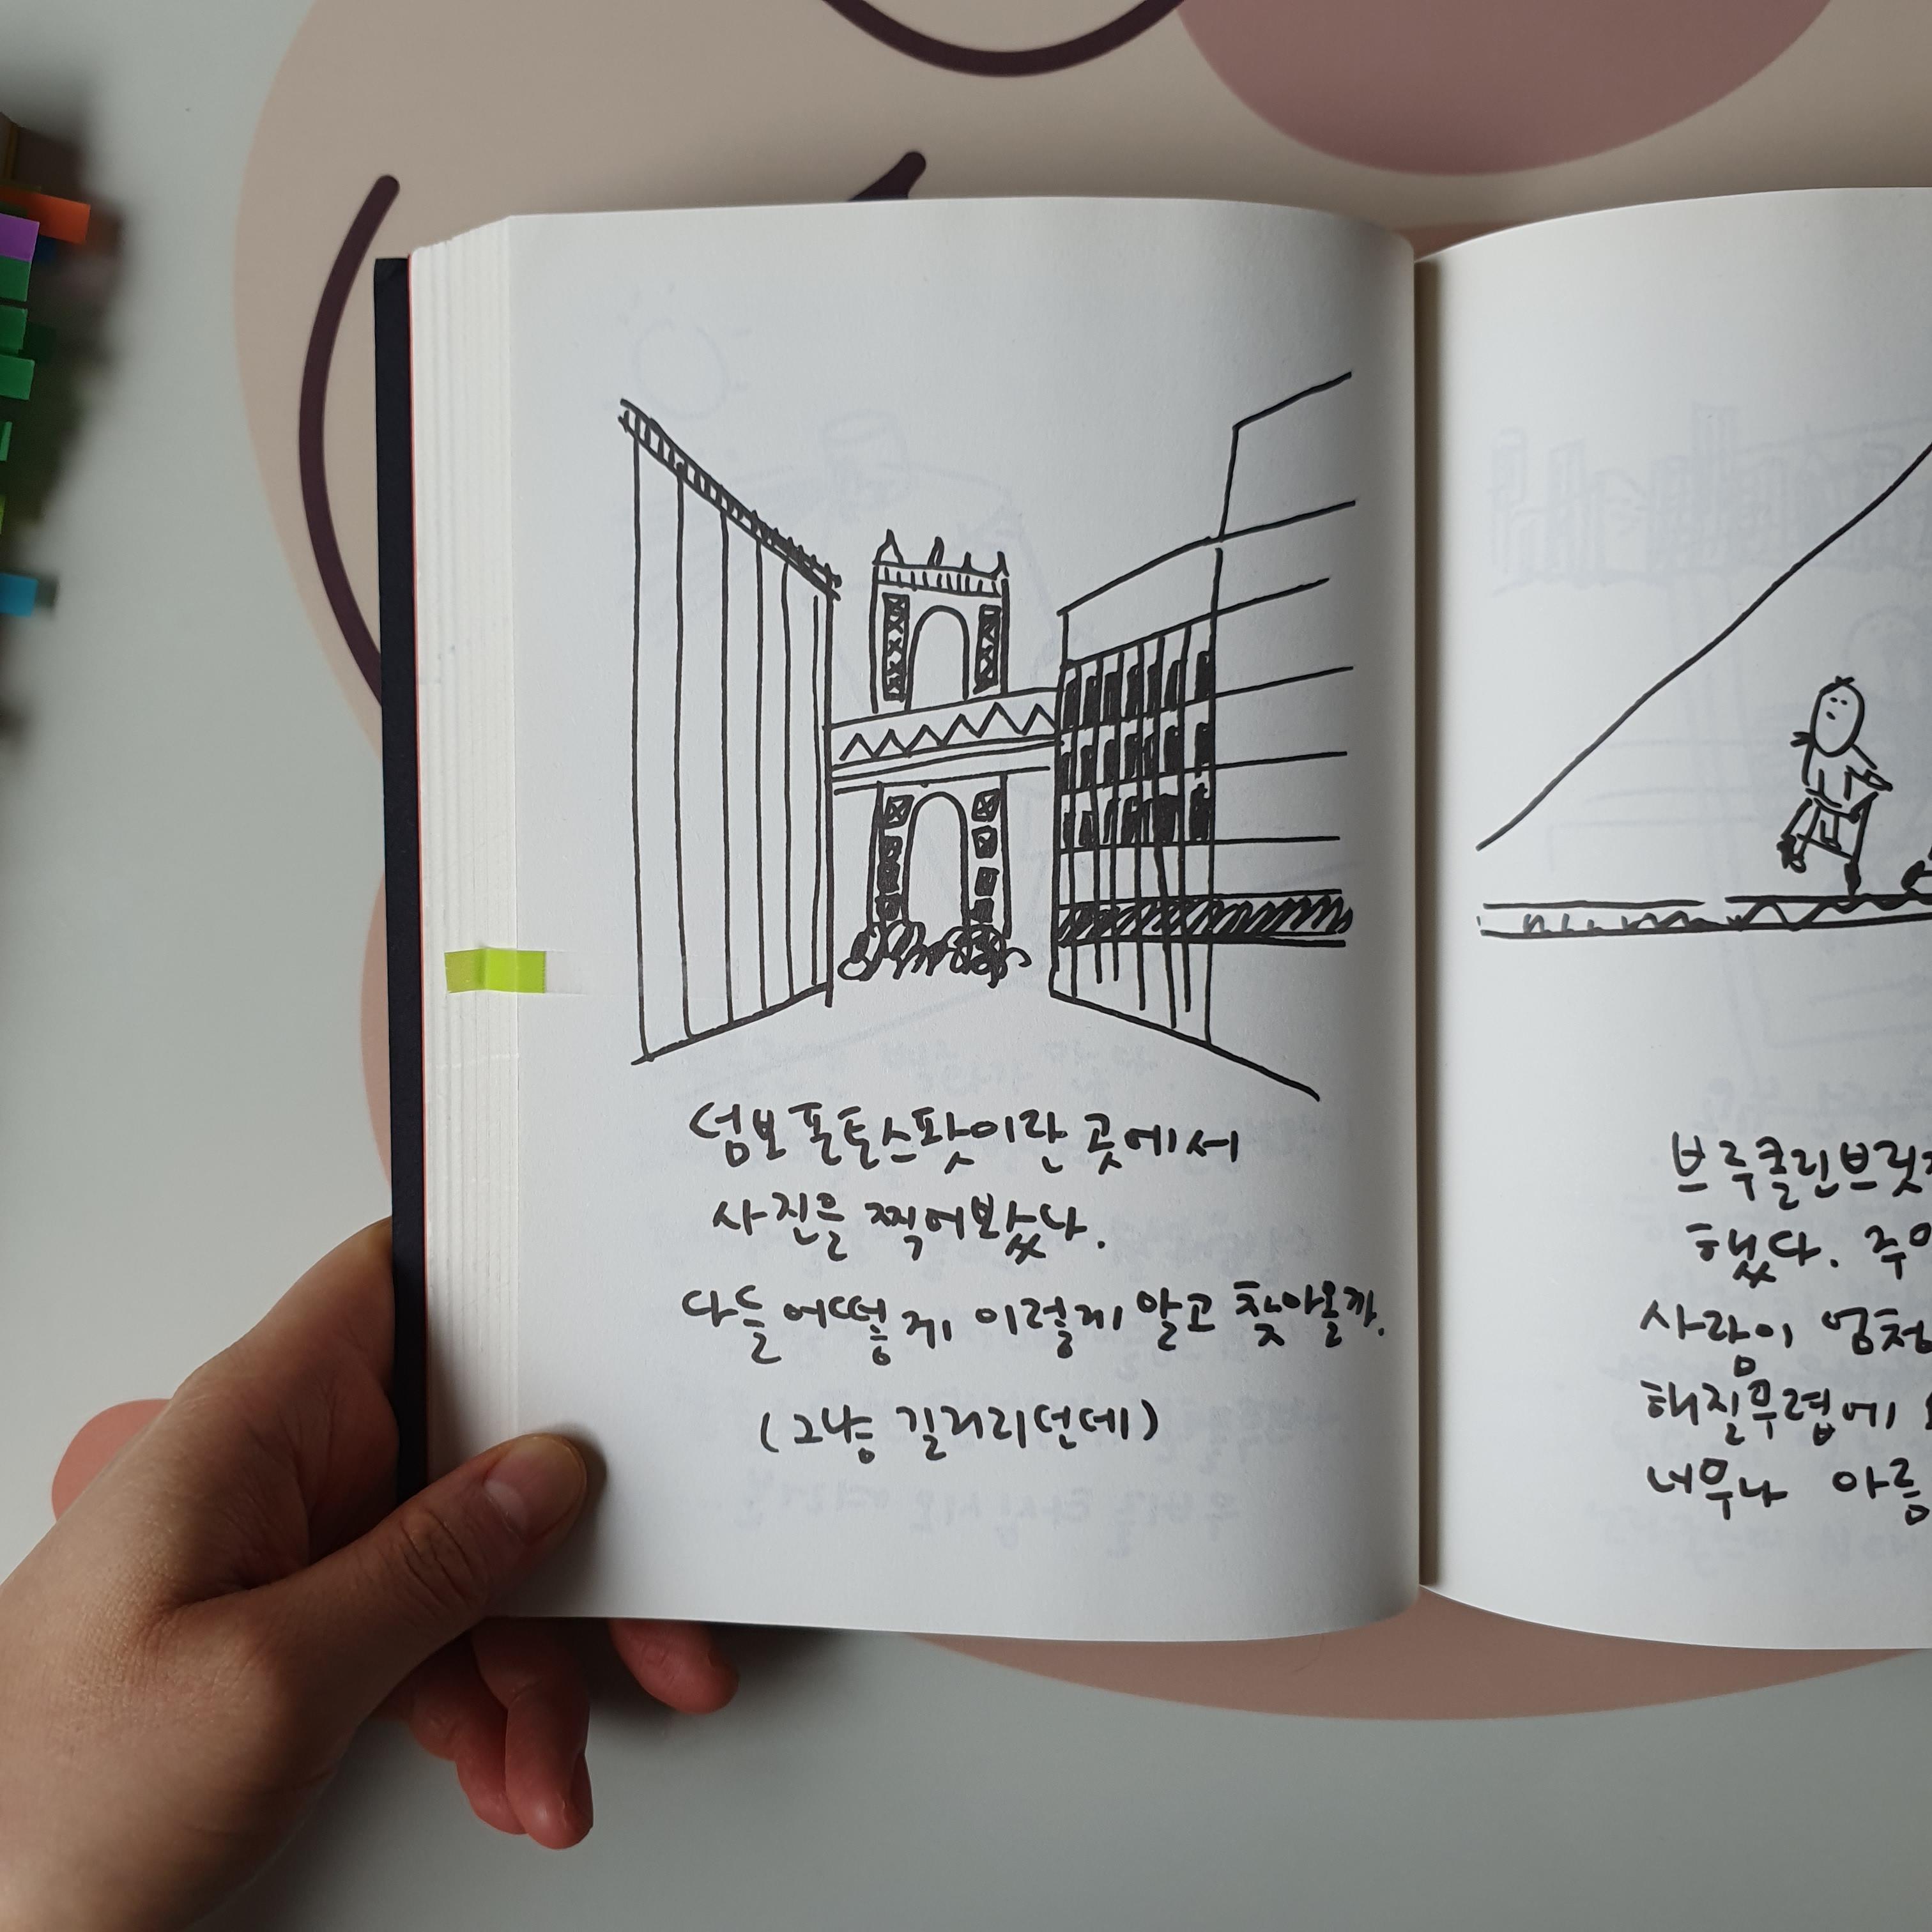 덤보 포토스팟이란 곳에서
사진을 찍어봤나.
다들 어떻게 이렇게 알고 찾아올까.
(그냥 길거리던데)
브루클린브릿지
했다. 주
사람이 엄청
해질무렵에
너무나 아름